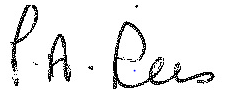 P. A. Rees